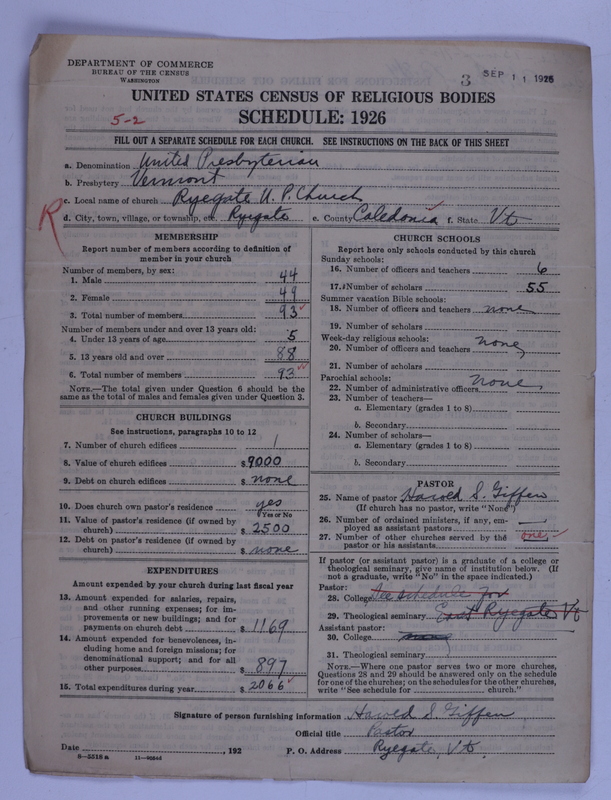 DEPARTMENT OF COMMERCE
BUREAU OF THE CENSUS
WASHINGTON
3 SEP 11 1926
UNITED STATES CENSUS OF RELIGIOUS BODIES
SCHEDULE: 1926
5-2
FILL OUT A SEPARATE SCHEDULE FOR EACH CHURCH. SEE INSTRUCTIONS ON THE BACK OF THIS SHEET
a. Denomination United Presbyterian
b. Presbytery Vermont
c. Local name of church Ryegate U. P. Church
R
d. City, town, village, or township, etc. Ryegate e. County Caledonia f. State Vt
MEMBERSHIP
Report number of members according to definition of
member in your church
Number of members, by sex:
1. Male 44
2. Female 49
3. Total number of members 93
Number of members under and over 13 years old:
4. Under 13 years of age 5
5. 13 years old and over 88
6. Total number of members 93
NOTE.—The total given under Question 6 should be the
same as the total of males and females given under Question 3.
CHURCH BUILDINGS
See instructions, paragraphs 10 to 12
7. Number of church edifices 1
8. Value of church edifices $9000
9. Debt on church edifices $ none
10. Does church own pastor's residence yes
Yes or No
11. Value of pastor's residence (if owned by
church) $2500
12. Debt on pastor's residence (if owned by
church) $ none
EXPENDITURES
Amount expended by your church during last fiscal year
13. Amount expended for salaries, repairs,
and other running expenses; for im-
provements or new buildings; and for
payments on church debt $1169
14. Amount expended for benevolences, in-
cluding home and foreign missions; for
denominational support; and for all
other purposes $897
15. Total expenditures during year $2066
CHURCH SCHOOLS
Report here only schools conducted by this church
Sunday schools:
16. Number of officers and teachers 6
17. Number of scholars 55
Summer vacation Bible schools:
18. Number of officers and teachers none
19. Number of scholars
Week-day religious schools:
20. Number of officers and teachers none
21. Number of scholars
Parochial schools:
22. Number of administrative officers none
23. Number of teachers—
a. Elementary (grades 1 to 8)
b. Secondary
24. Number of scholars—
a. Elementary (grades 1 to 8)
b. Secondary
PASTOR
25. Name of pastor Harold S. Giffen
(If church has no pastor, write "None")
26. Number of ordained ministers, if any, em-
ployed as assistant pastors —
27. Number of other churches served by the
pastor or his assistants one
If pastor (or assistant pastor) is a graduate of a college or
theological seminary, give name of institution below. (If
not a graduate, write "No" in the space indicated.)
Pastor:
28. College See schedule for
29. Theological seminary East Ryegate Vt
Assistant pastor:
30. College
31. Theological seminary
NOTE.—Where one pastor serves two or more churches,
Questions 28 and 29 should be answered only on the schedule
for one of the churches; on the schedules for the other churches,
write "See schedule for church."
Signature of person furnishing information Harold S. Giffen
Official title Pastor
Date , 192 P. O. Address Ryegate, Vt.
8-5518a